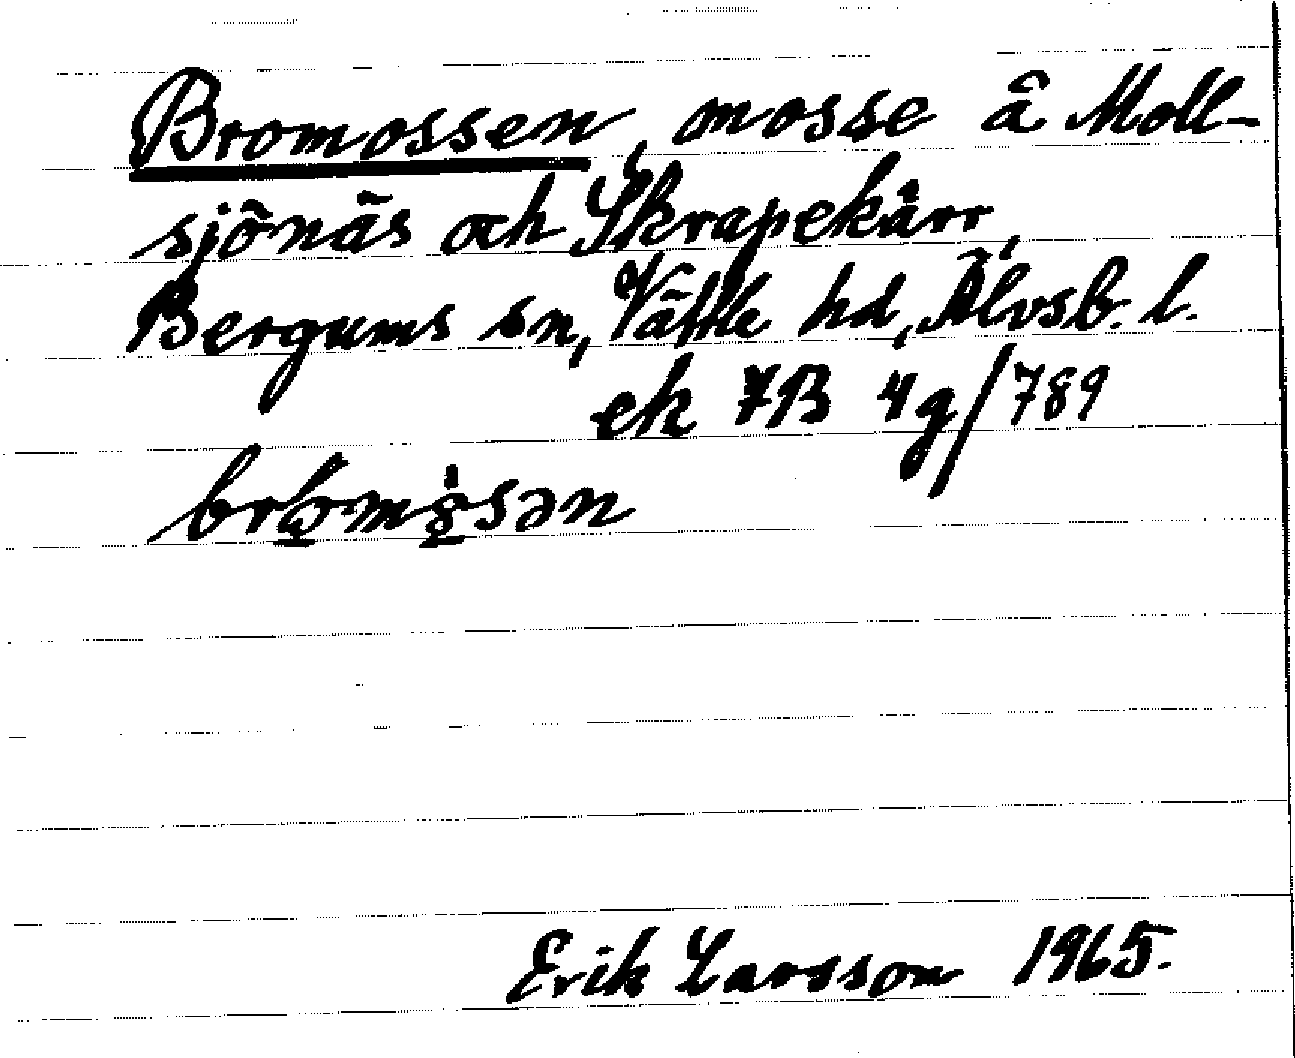 Bromossen, mosse å Moll-
sjönäs och Skrapekärr,
Bergums sn, Vättle hd, Älvsb. l.
ek 7B 4g/789
Erik Larsson 1965.